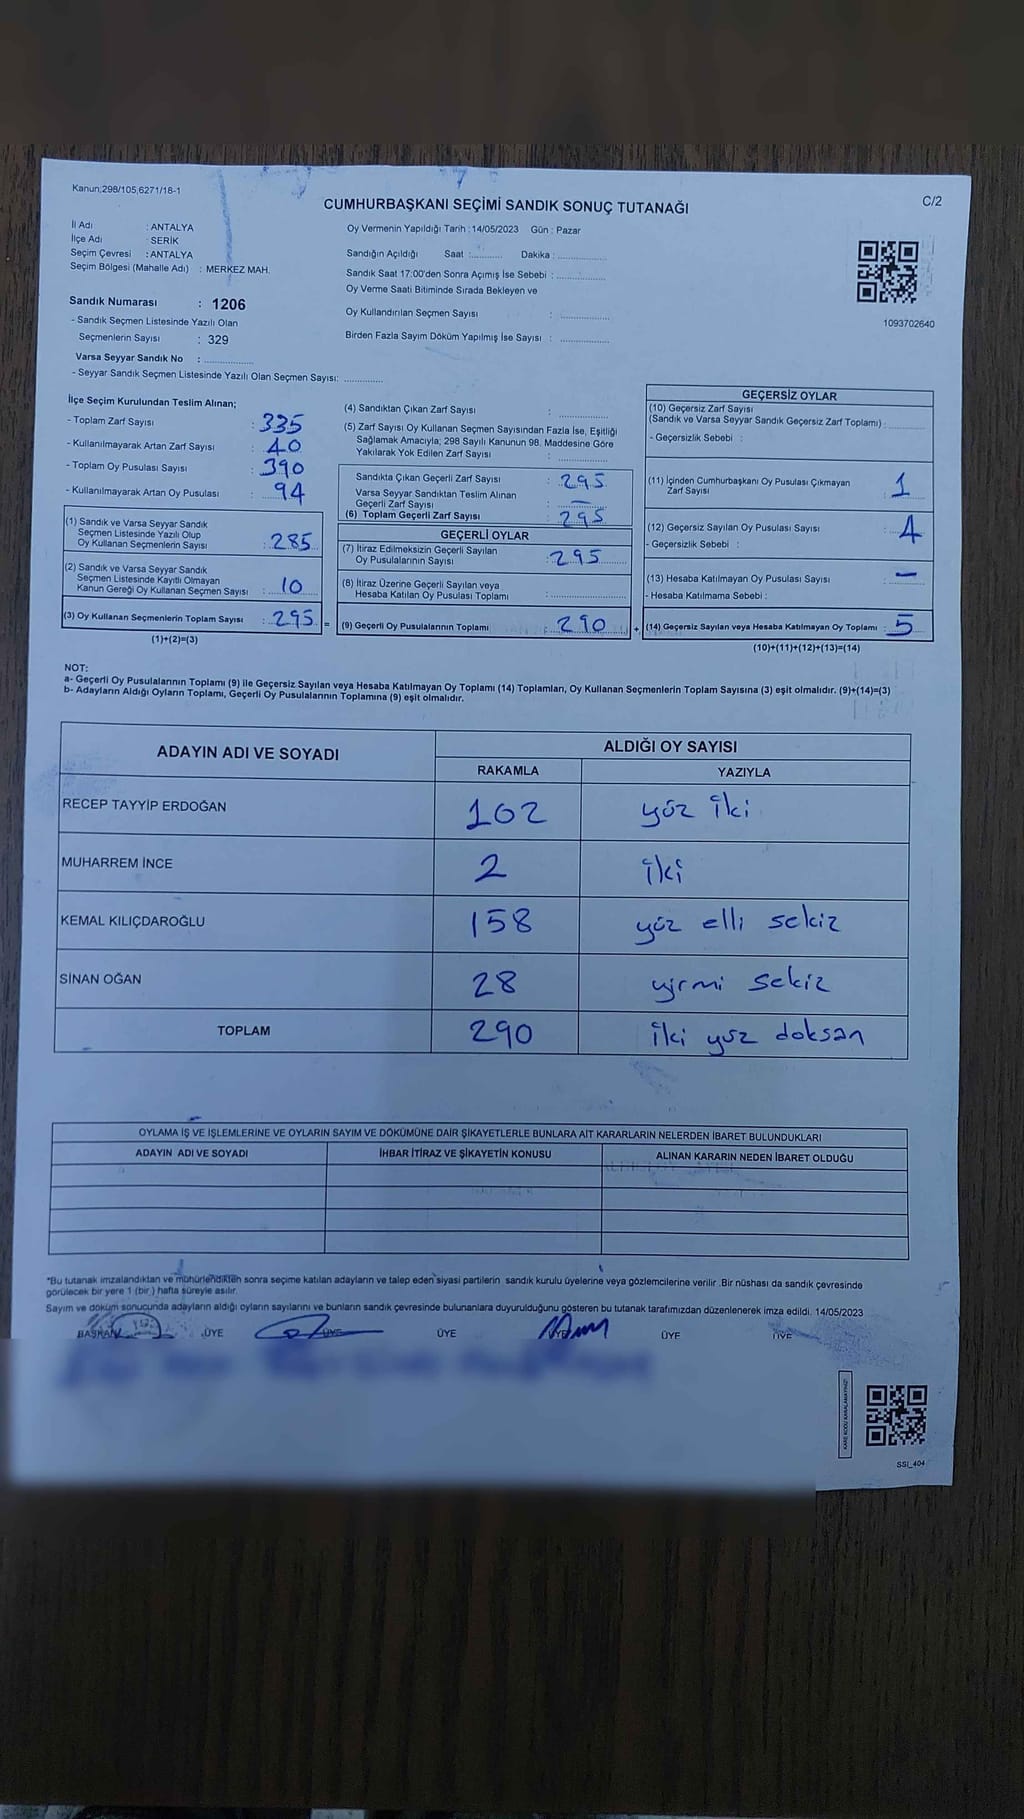 Kanun;298/105,6271/18-1
C/2
CUMHURBAŞKANI SEÇİMİ SANDIK SONUÇ TUTANAĞI
İl Adı : ANTALYA
İlçe Adı : SERİK
Seçim Çevresi : ANTALYA
Seçim Bölgesi (Mahalle Adı) : MERKEZ MAH.
Sandık Numarası : 1206
- Sandık Seçmen Listesinde Yazılı Olan
Seçmenlerin Sayısı : 329
Varsa Seyyar Sandık No :
- Seyyar Sandık Seçmen Listesinde Yazılı Olan Seçmen Sayısı:
Oy Vermenin Yapıldığı Tarih :14/05/2023 Gün : Pazar
Sandığın Açıldığı Saat : Dakika :
Sandık Saat 17:00'den Sonra Açımış İse Sebebi :
Oy Verme Saati Bitiminde Sırada Bekleyen ve
Oy Kullandırılan Seçmen Sayısı :
Birden Fazla Sayım Döküm Yapılmış İse Sayısı :
1093702640
İlçe Seçim Kurulundan Teslim Alınan;
- Toplam Zarf Sayısı : 335
- Kullanılmayarak Artan Zarf Sayısı : 40
- Toplam Oy Pusulası Sayısı : 390
- Kullanılmayarak Artan Oy Pusulası : 94
(1) Sandık ve Varsa Seyyar Sandık
Seçmen Listesinde Yazılı Olup
Oy Kullanan Seçmenlerin Sayısı : 285
(2) Sandık ve Varsa Seyyar Sandık
Seçmen Listesinde Kayıtlı Olmayan
Kanun Gereği Oy Kullanan Seçmen Sayısı : 10
(3) Oy Kullanan Seçmenlerin Toplam Sayısı : 295 =
(1)+(2)=(3)
(4) Sandıktan Çıkan Zarf Sayısı :
(5) Zarf Sayısı Oy Kullanan Seçmen Sayısından Fazla İse, Eşitliği
Sağlamak Amacıyla; 298 Sayılı Kanunun 98. Maddesine Göre
Yakılarak Yok Edilen Zarf Sayısı :
Sandıkta Çıkan Geçerli Zarf Sayısı : 295
Varsa Seyyar Sandıktan Teslim Alınan
Geçerli Zarf Sayısı : —
(6) Toplam Geçerli Zarf Sayısı : 295
GEÇERLİ OYLAR
(7) İtiraz Edilmeksizin Geçerli Sayılan
Oy Pusulalarının Sayısı : 295
(8) İtiraz Üzerine Geçerli Sayılan veya
Hesaba Katılan Oy Pusulası Toplamı :
(9) Geçerli Oy Pusulalarının Toplamı : 290 +
GEÇERSİZ OYLAR
(10) Geçersiz Zarf Sayısı
(Sandık ve Varsa Seyyar Sandık Geçersiz Zarf Toplamı) :
- Geçersizlik Sebebi :
(11) İçinden Cumhurbaşkanı Oy Pusulası Çıkmayan
Zarf Sayısı 1
(12) Geçersiz Sayılan Oy Pusulası Sayısı : 4
- Geçersizlik Sebebi :
(13) Hesaba Katılmayan Oy Pusulası Sayısı : —
- Hesaba Katılmama Sebebi :
(14) Geçersiz Sayılan veya Hesaba Katılmayan Oy Toplamı : 5
(10)+(11)+(12)+(13)=(14)
NOT:
a- Geçerli Oy Pusulalarının Toplamı (9) ile Geçersiz Sayılan veya Hesaba Katılmayan Oy Toplamı (14) Toplamları, Oy Kullanan Seçmenlerin Toplam Sayısına (3) eşit olmalıdır. (9)+(14)=(3)
b- Adayların Aldığı Oyların Toplamı, Geçerli Oy Pusulalarının Toplamına (9) eşit olmalıdır.
ADAYIN ADI VE SOYADI
ALDIĞI OY SAYISI
RAKAMLA YAZIYLA
RECEP TAYYİP ERDOĞAN 102 yüz iki
MUHARREM İNCE 2 iki
KEMAL KILIÇDAROĞLU 158 yüz elli sekiz
SİNAN OĞAN 28 yirmi sekiz
TOPLAM 290 iki yüz doksan
OYLAMA İŞ VE İŞLEMLERİNE VE OYLARIN SAYIM VE DÖKÜMÜNE DAİR ŞİKAYETLERLE BUNLARA AİT KARARLARIN NELERDEN İBARET BULUNDUKLARI
ADAYIN ADI VE SOYADI İHBAR İTİRAZ VE ŞİKAYETİN KONUSU ALINAN KARARIN NEDEN İBARET OLDUĞU
*Bu tutanak imzalandıktan ve mühürlendikten sonra seçime katılan adayların ve talep eden siyasi partilerin sandık kurulu üyelerine veya gözlemcilerine verilir .Bir nüshası da sandık çevresinde
görülecek bir yere 1 (bir ) hafta süreyle asılır.
Sayım ve döküm sonucunda adayların aldığı oyların sayılarını ve bunların sandık çevresinde bulunanlara duyurulduğunu gösteren bu tutanak tarafımızdan düzenlenerek imza edildi. 14/05/2023
BAŞKAN ÜYE ÜYE ÜYE ÜYE ÜYE ÜYE
KARE KODU KARALAMAYINIZ!
SSI_404